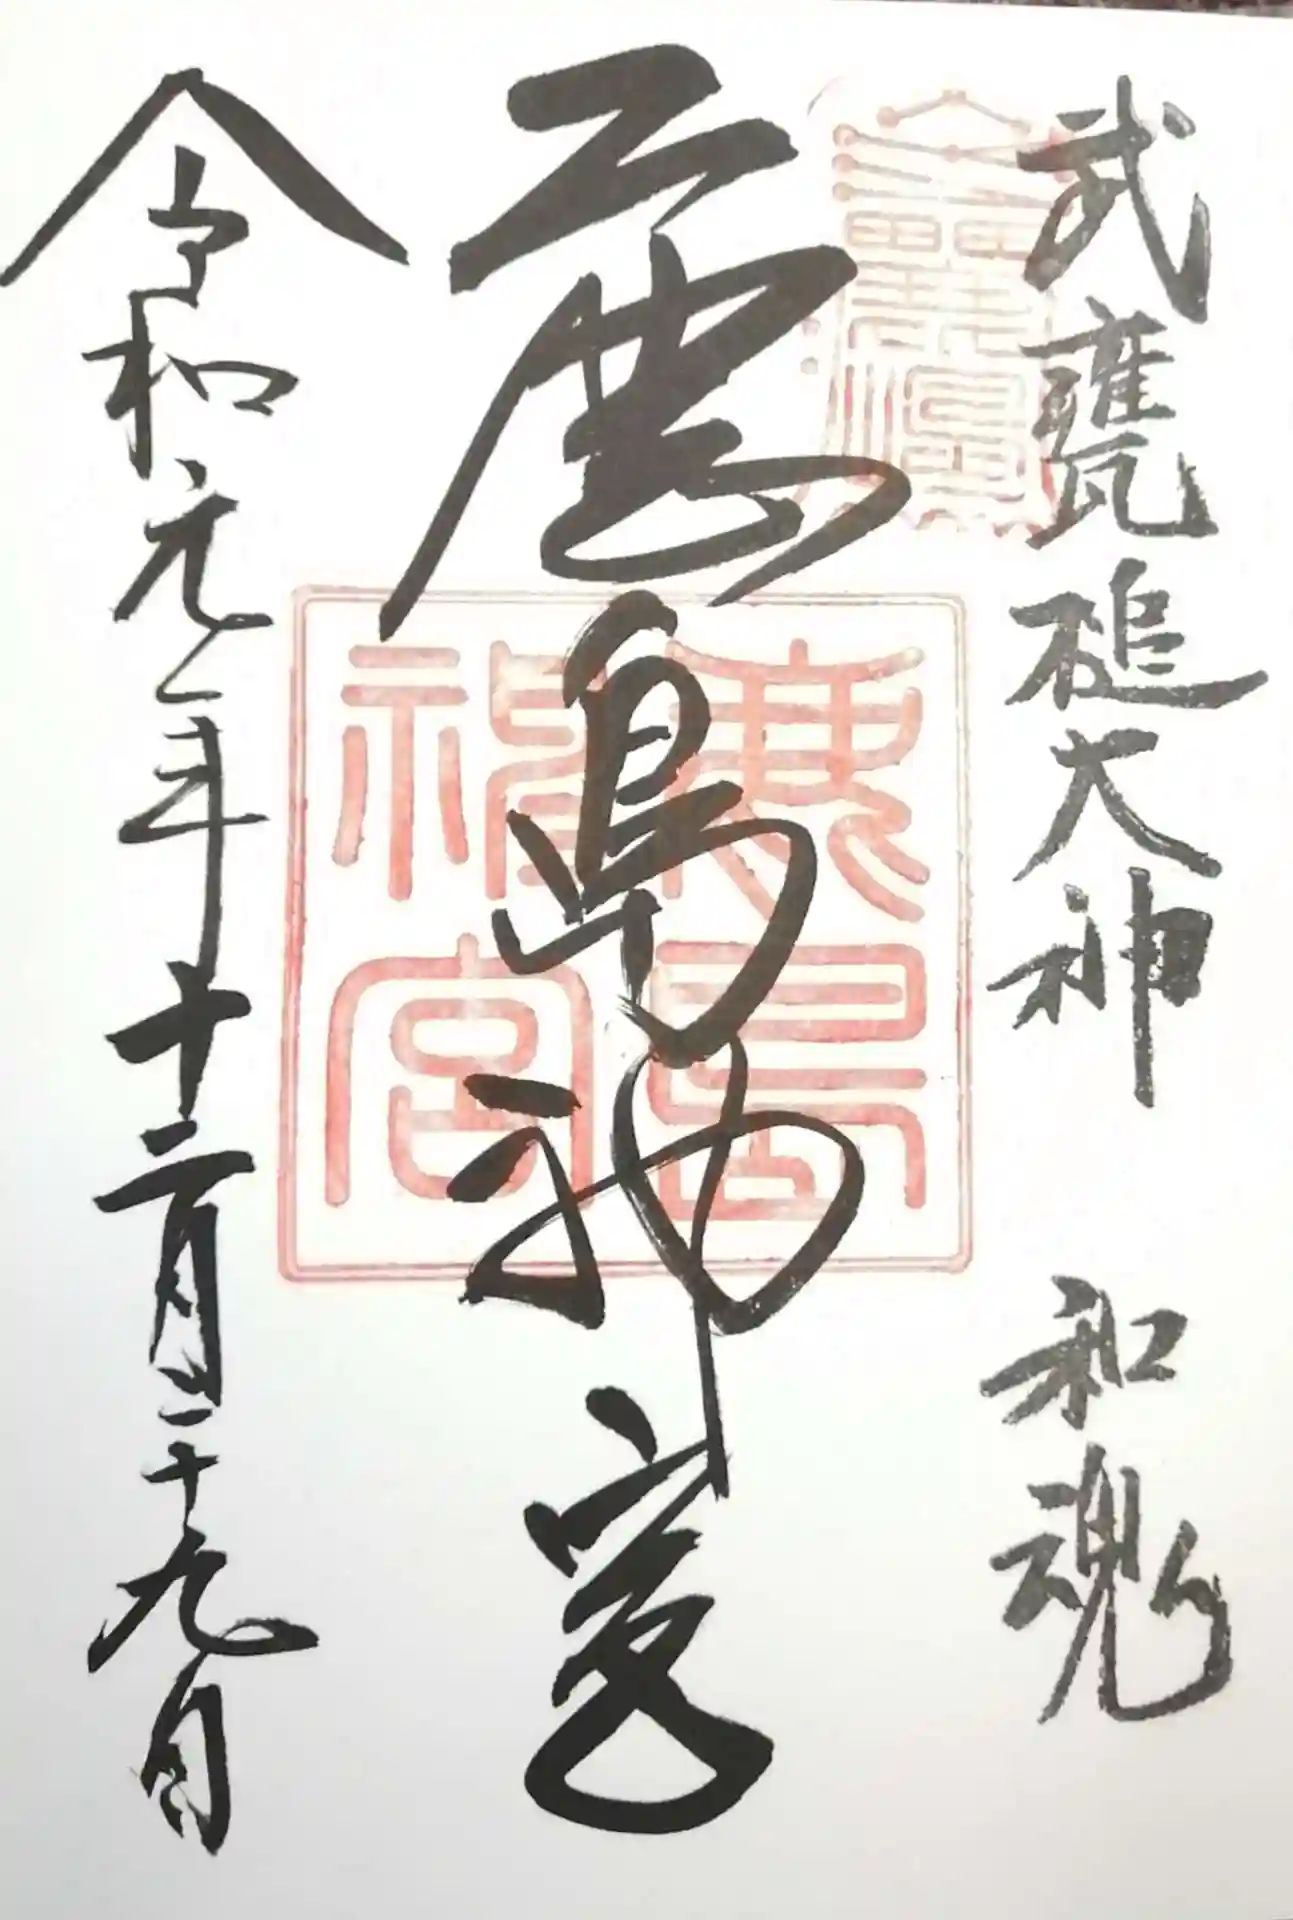 武甕槌大神 和魂
鹿島神宮
鹿島神宮
令和元年十二月二十九日